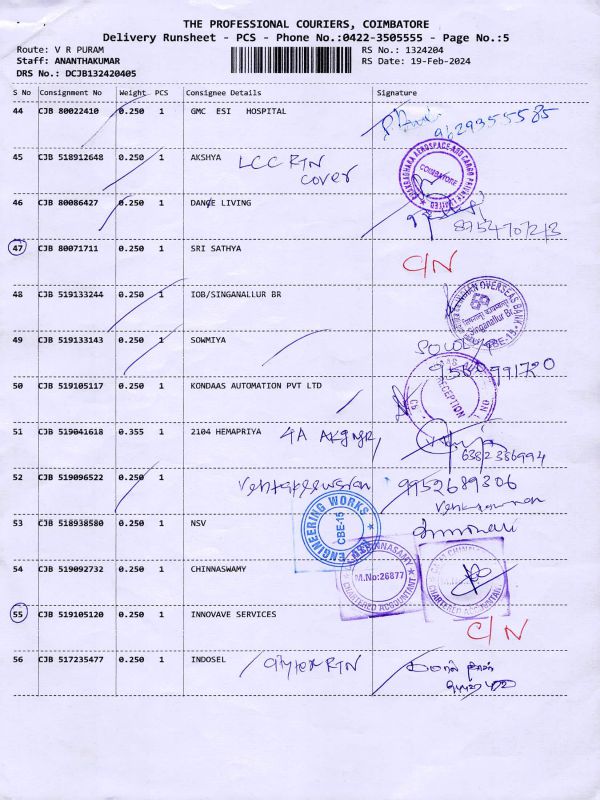 THE PROFESSIONAL COURIERS, COIMBATORE
Delivery Runsheet - PCS - Phone No.:0422-3505555 - Page No.:5
Route: V R PURAM RS No.: 1324204
Staff: ANANTHAKUMAR RS Date: 19-Feb-2024
DRS No.: DCJB132420405
S No Consignment No Weight PCS Consignee Details Signature
44 CJB 80022410 0.250 1 GMC ESI HOSPITAL
9629355585
45 CJB 518912648 0.250 1 AKSHYA LCC RTN
cover
CHAKRADHARA AEROSPACE AND CARGO PRIVATE LIMITED
COIMBATORE
46 CJB 80086427 0.250 1 DANCE LIVING
8754707213
47 CJB 80071711 0.250 1 SRI SATHYA
C/N
48 CJB 519133244 0.250 1 IOB/SINGANALLUR BR
INDIAN OVERSEAS BANK
Singanallur Br.
CBE-15
49 CJB 519133143 0.250 1 SOWMIYA
50 CJB 519105117 0.250 1 KONDAAS AUTOMATION PVT LTD
RECEPTION
51 CJB 519041618 0.355 1 2104 HEMAPRIYA 4A
6382386994
52 CJB 519096522 0.250 1
9952689306
53 CJB 518938580 0.250 1 NSV
ENGINEERING WORKS
CBE-15
54 CJB 519092732 0.250 1 CHINNASWAMY
CHINNASAMY
M.No:26877
CHARTERED ACCOUNTANT
CHARTERED ACCOUNTANT
55 CJB 519105120 0.250 1 INNOVAVE SERVICES
C/N
56 CJB 517235477 0.250 1 INDOSEL RTN